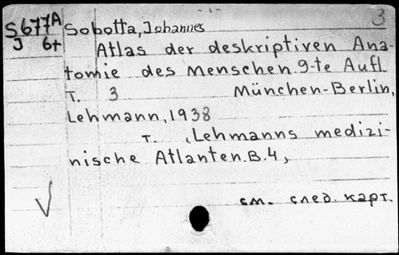 - 1 -
3
S677A Sobotta, Johannes
J 6+
Atlas der deskriptiven Ana-
tomie des Menschen. 9-te Aufl
T. 3 München-Berlin,
Lehmann, 1938
т. , Lehmanns medizi-
nische Atlanten. B. 4,
см. след. карт.